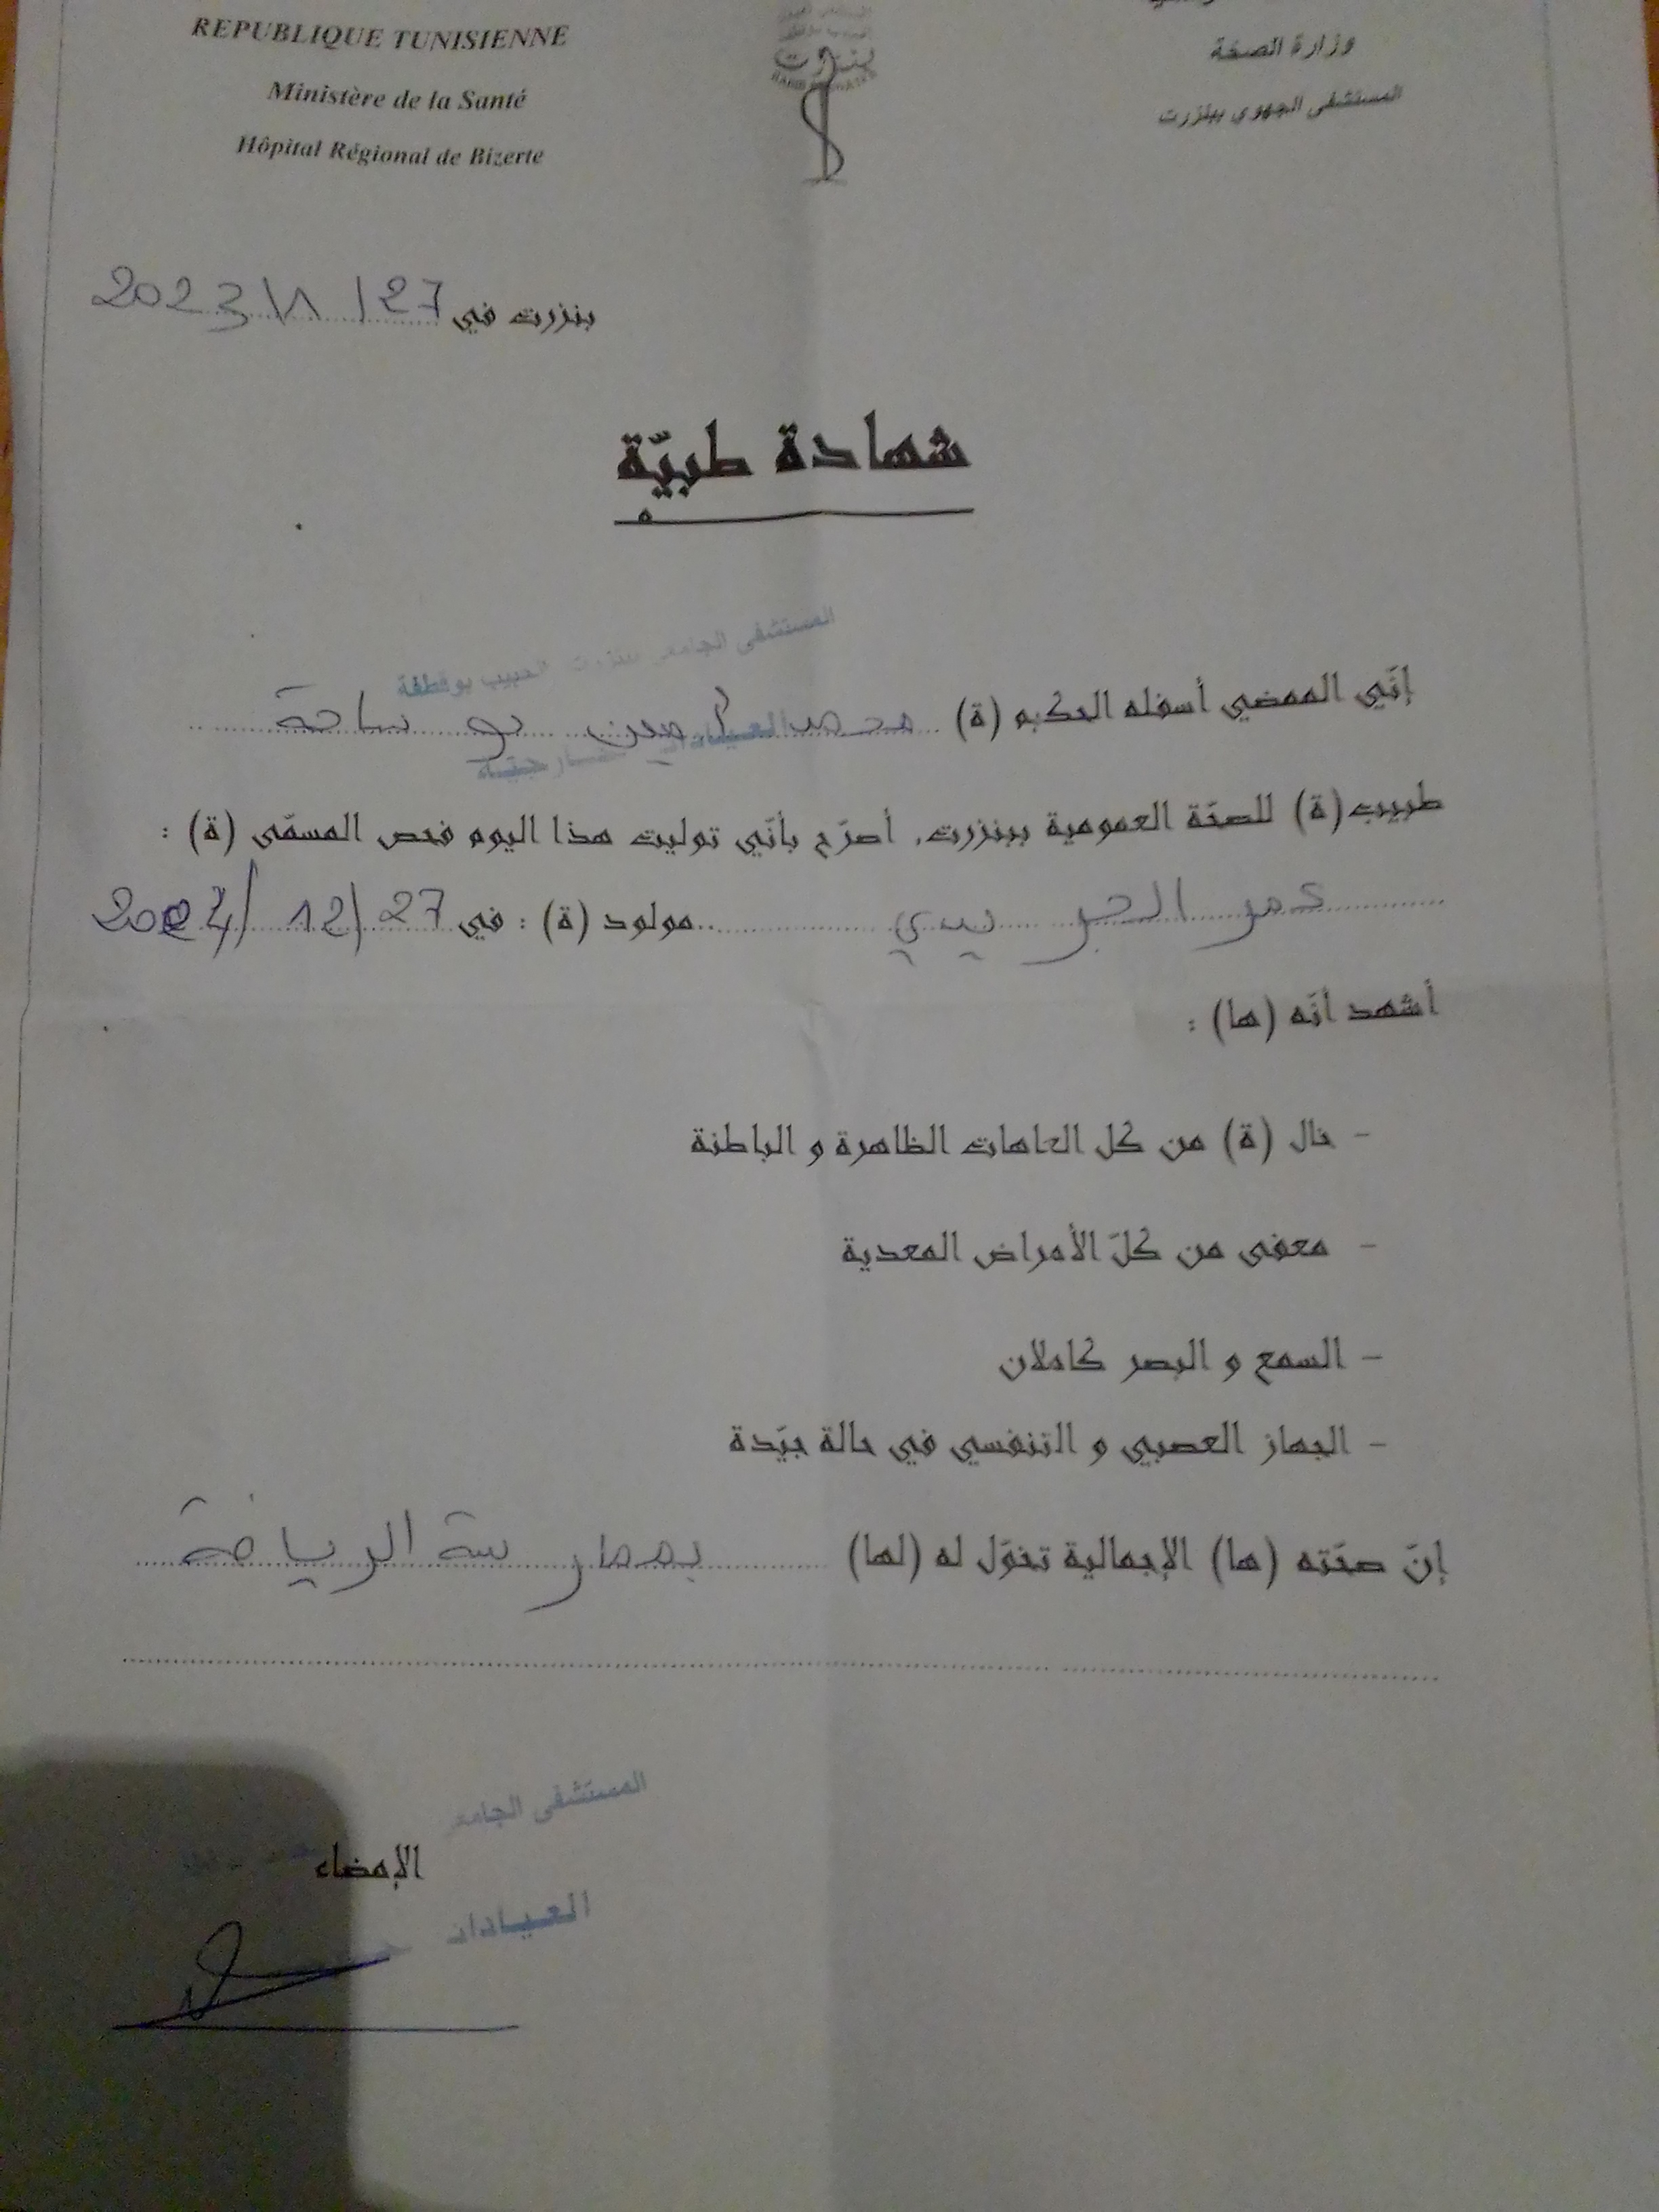 REPUBLIQUE TUNISIENNE
Ministère de la Santé
Hôpital Régional de Bizerte
وزارة الصحّة
المستشفى الجهوي ببنزرت
بنزرت
بنزرت في 27 / 1 / 2023
شهادة طبيّة
المستشفى الجامعي ببنزرت الحبيب بوقطفة
إنّي الممضي أسفله الحكيم (ة) محمد أمين بو ساحة
العيادات الخارجية
طبيب(ة) للصحّة العمومية ببنزرت، أصرّح بأنّي توليت هذا اليوم فحص المسمّى (ة) :
مولود (ة) : في 27 / 12 /
أشهد أنّه (ها) :
- خال (ة) من كل العاهات الظاهرة و الباطنة
- معفى من كلّ الأمراض المعدية
- السمع و البصر كاملان
- الجهاز العصبي و التنفسي في حالة جيّدة
إنّ صحّته (ها) الإجمالية تخوّل له (لها) بممارسة الرياضة
المستشفى الجامعي
الإمضاء
العيادات